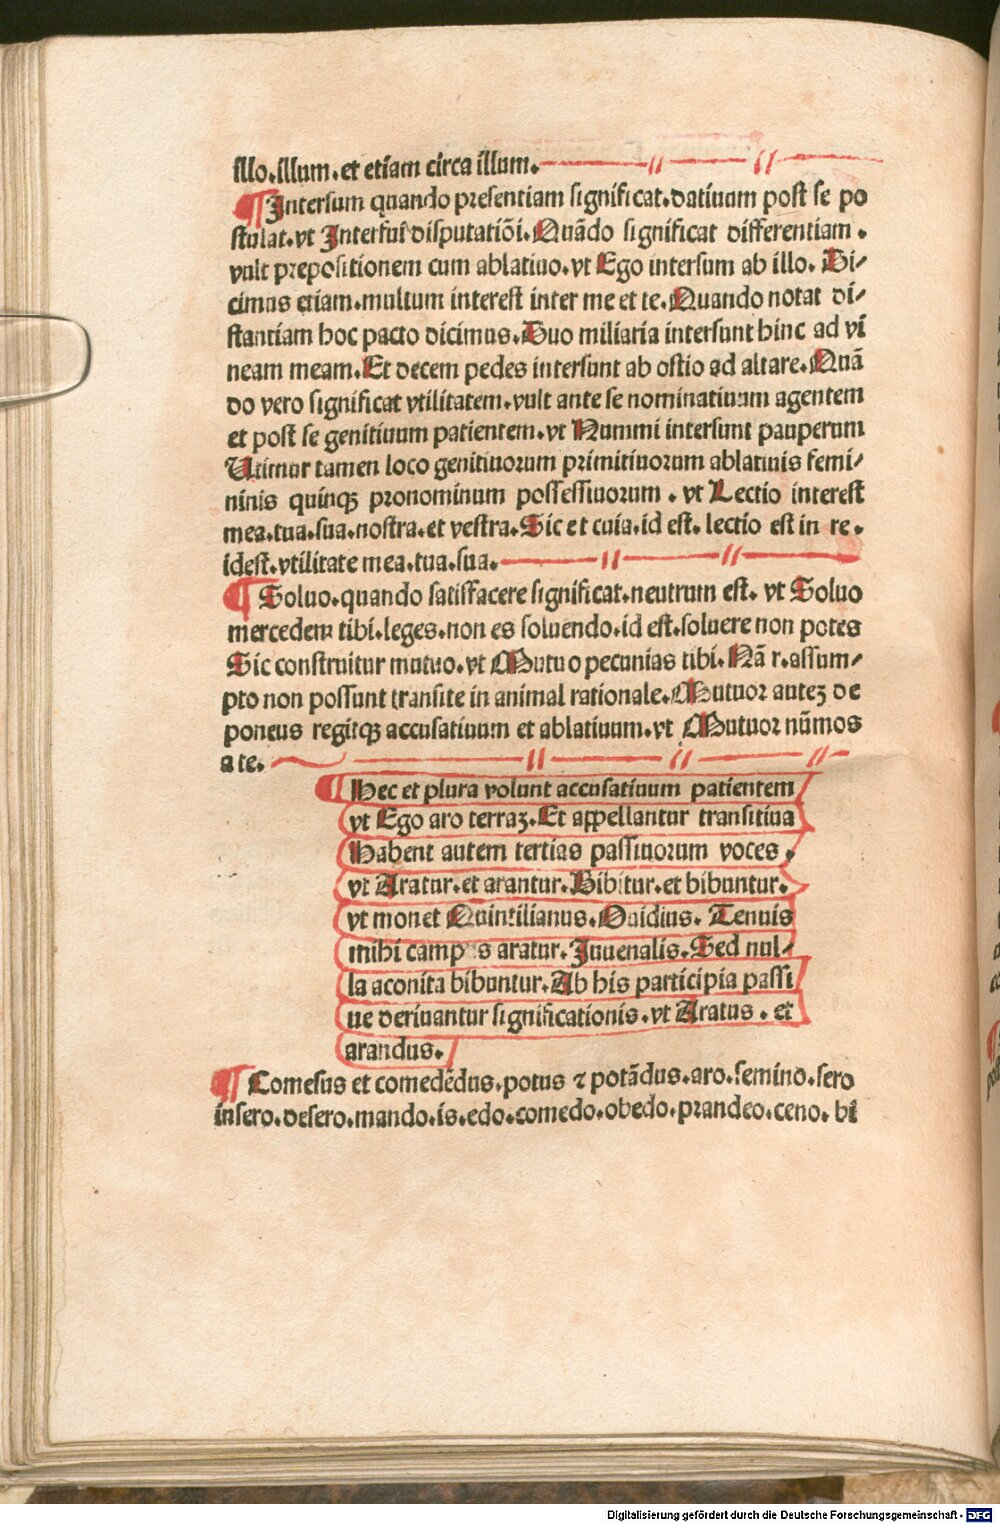 illo.illum.et etiam circa illum.
¶ Intersum quando presentiam significat.datiuum post se po
stulat.vt Interfui disputatiõi.Quãdo significat differentiam.
vult prepositionem cum ablatiuo.vt Ego intersum ab illo. Di/
cimus etiam.multum interest inter me et te.Quando notat di/
stantiam hoc pacto dicimus.Duo miliaria intersunt hinc ad vi
neam meam.Et decem pedes intersunt ab ostio ad altare.Quã
do vero significat vtilitatem.vult ante se nominatiuum agentem
et post se genitiuum patientem.vt Nummi intersunt pauperum
Utimur tamen loco genitiuorum primitiuorum ablatiuis femi/
ninis quinqꝫ pronominum possessiuorum . vt Lectio interest
mea.tua.sua.nostra.et vestra.Sic et cuia.id est.lectio est in re.
idest.vtilitate mea.tua.sua.
¶ Soluo.quando satisfacere significat.neutrum est. vt Soluo
mercedem tibi.leges.non es soluendo.id est.soluere non potes
Sic construitur mutuo.vt Mutuo pecunias tibi.Nã r.assum/
pto non possunt transite in animal rationale.Mutuor auteꝫ de
poneus regitqꝫ accusatiuum et ablatiuum.vt Mutuor nũmos
a te.
¶ Hec et plura volunt accusatiuum patientem
vt Ego aro terraꝫ.Et appellantur transitiua
Habent autem tertias passiuorum voces.
vt Aratur.et arantur.Bibitur.et bibuntur.
vt monet Quintilianus.Ouidius. Tenuis
mihi campus aratur.Juuenalis.Sed nul/
la aconita bibuntur.Ab his participia passi
ue deriuantur significationis.vt Aratus . et
arandus.
¶ Comesus et comedẽdus.potus ⁊ potãdus.aro.semino.sero
insero.desero.mando.is.edo.comedo.obedo.prandeo.ceno. bi
Digitalisierung gefördert durch die Deutsche Forschungsgemeinschaft - DFG